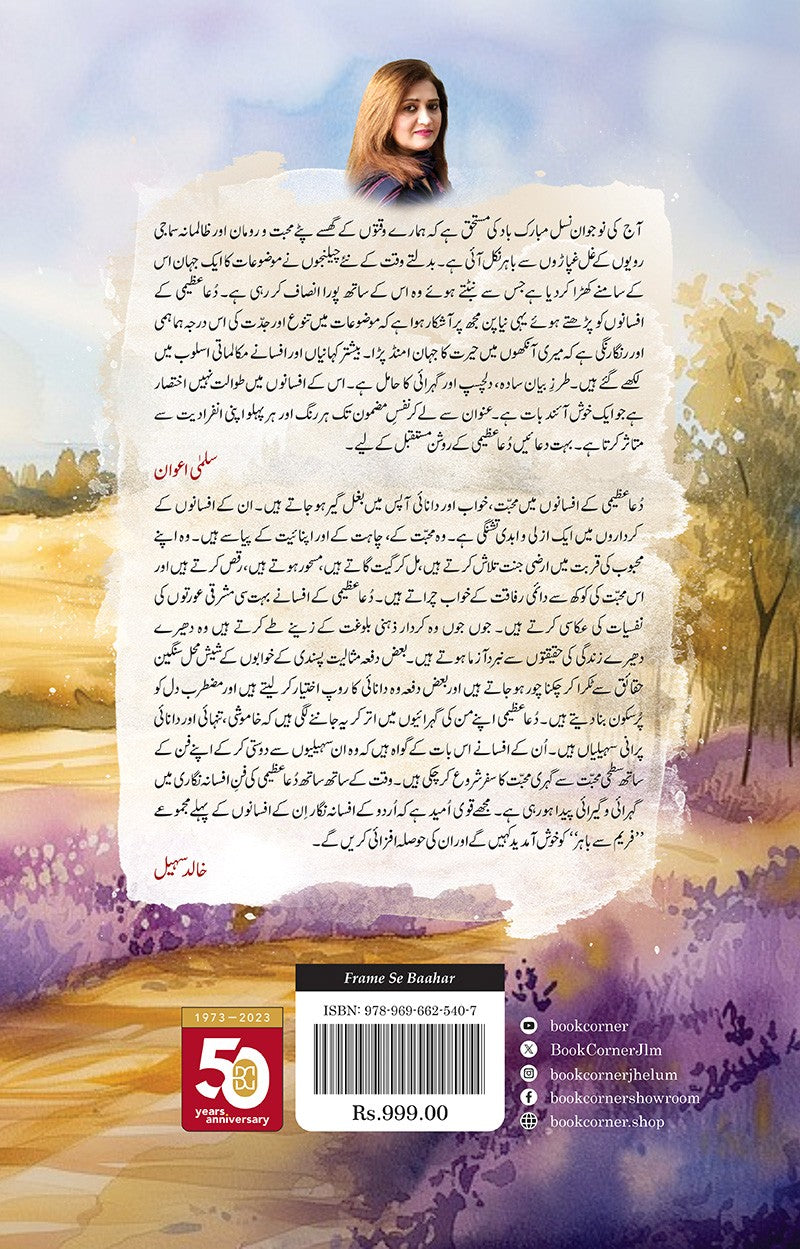 آج کی نوجوان نسل مبارک باد کی مستحق ہے کہ ہمارے وقتوں کے گھسے پٹے محبت و رومان اور ظالمانہ سماجی
رویوں کے غل غپاڑوں سے باہر نکل آئی ہے۔ بدلتے وقت کے نئے چیلنجوں نے موضوعات کا ایک جہان اس
کے سامنے کھڑا کر دیا ہے جس سے نپٹتے ہوئے وہ اس کے ساتھ پورا انصاف کر رہی ہے۔ دُعا عظیمی کے
افسانوں کو پڑھتے ہوئے یہی نیا پن مجھ پر آشکار ہوا ہے کہ موضوعات میں تنوع اور جدّت کی اس درجہ ہماہمی
اور رنگارنگی ہے کہ میری آنکھوں میں حیرت کا جہان امنڈ پڑا۔ بیشتر کہانیاں اور افسانے مکالماتی اسلوب میں
لکھے گئے ہیں۔ طرزِ بیان سادہ، دلچسپ اور گہرائی کا حامل ہے۔ اس کے افسانوں میں طوالت نہیں اختصار
ہے جو ایک خوش آئند بات ہے۔ عنوان سے لے کر نفسِ مضمون تک ہر رنگ اور ہر پہلو اپنی انفرادیت سے
متاثر کرتا ہے۔ بہت دعائیں دُعا عظیمی کے روشن مستقبل کے لیے۔
سلمٰی اعوان
دُعا عظیمی کے افسانوں میں محبّت، خواب اور دانائی آپس میں بغل گیر ہو جاتے ہیں۔ ان کے افسانوں کے
کرداروں میں ایک ازلی و ابدی تشنگی ہے۔ وہ محبّت کے، چاہت کے اور اپنائیت کے پیاسے ہیں۔ وہ اپنے
محبوب کی قربت میں ارضی جنت تلاش کرتے ہیں، مل کر گیت گاتے ہیں، مسحور ہوتے ہیں، رقص کرتے ہیں اور
اس محبّت کی کوکھ سے دائمی رفاقت کے خواب چراتے ہیں۔ دُعا عظیمی کے افسانے بہت سی مشرقی عورتوں کی
نفسیات کی عکاسی کرتے ہیں۔ جوں جوں وہ کردار ذہنی بلوغت کے زینے طے کرتے ہیں وہ دھیرے
دھیرے زندگی کی حقیقتوں سے نبرد آزما ہوتے ہیں۔ بعض دفعہ مثالیت پسندی کے خوابوں کے شیش محل سنگین
حقائق سے ٹکرا کر چکنا چور ہو جاتے ہیں اور بعض دفعہ وہ دانائی کا روپ اختیار کر لیتے ہیں اور مضطرب دل کو
پُرسکون بنا دیتے ہیں۔ دُعا عظیمی اپنے من کی گہرائیوں میں اتر کر یہ جاننے لگی ہیں کہ خاموشی، تنہائی اور دانائی
پرانی سہیلیاں ہیں۔ اُن کے افسانے اس بات کے گواہ ہیں کہ وہ ان سہیلیوں سے دوستی کر کے اپنے فن کے
ساتھ سطحی محبّت سے گہری محبّت کا سفر شروع کر چکی ہیں۔ وقت کے ساتھ ساتھ دُعا عظیمی کی فنِ افسانہ نگاری میں
گہرائی و گیرائی پیدا ہو رہی ہے۔ مجھے قوی اُمید ہے کہ اُردو کے افسانہ نگار اِن کے افسانوں کے پہلے مجموعے
’’فریم سے باہر‘‘ کو خوش آمدید کہیں گے اور ان کی حوصلہ افزائی کریں گے۔
خالد سہیل
Frame Se Baahar
ISBN: 978-969-662-540-7
Rs.999.00
1973–2023
50
years
anniversary
bookcorner
BookCornerJlm
bookcornerjhelum
bookcornershowroom
bookcorner.shop